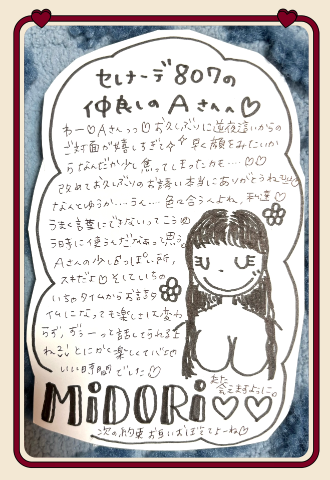 セレナーデ807の
仲良しのAさんへ♡
わー♡Aさんっっ♡お久しぶりに逆夜這いからの
ご対面が嬉しすぎて 早く顔をみたいか
らなんだか少し焦ってしまったかも…♡♡
改めてお久しぶりのお誘い本当にありがとうね
なんとゆうか…うん…色々合うよね、私達♡
うまく言葉にできないってこうゆ
う時に使うんだなぁって思う。
Aさんの少しSっぽい所、
スキだよ♡そしていちゃ
いちゃタイムからお話タ
イムになっても楽しさは変わ
らず、ずーっと話してられるよ
ね!とにかく楽しくてバグの
いい時間でした♡
また
会えますように。
MiDORi♡♡
次の約束お互いおぼえてよーね♡